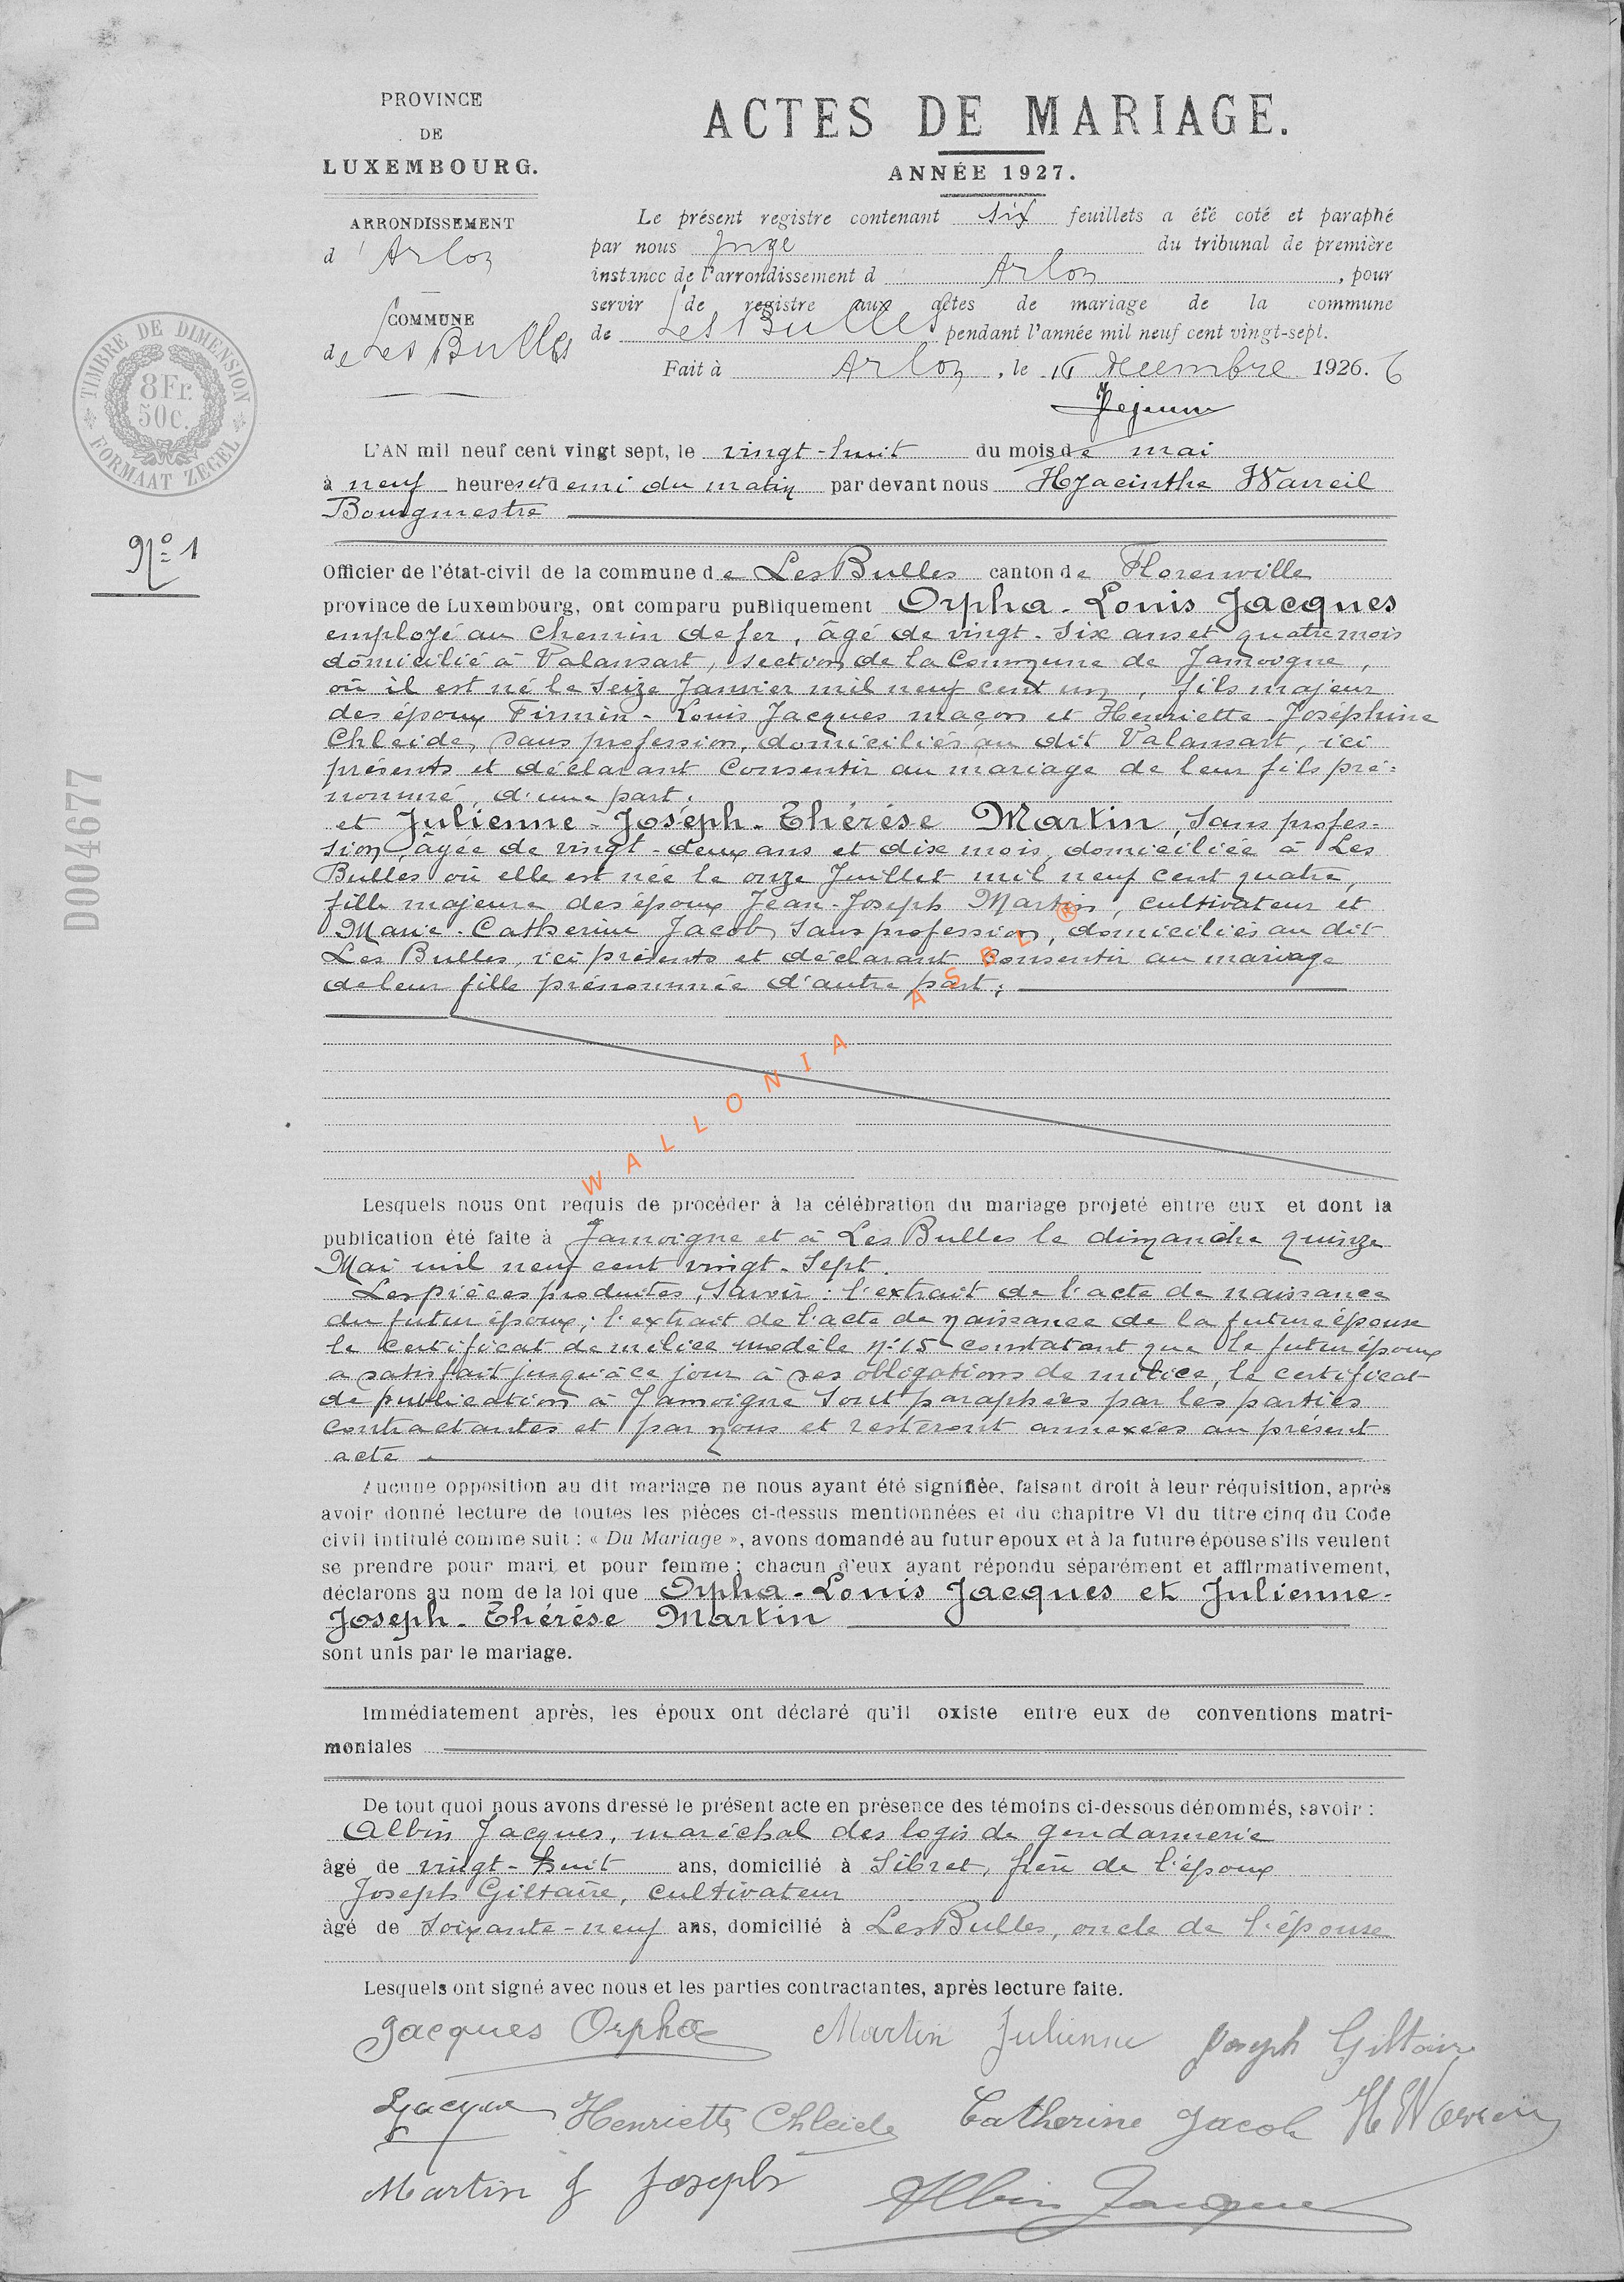 PROVINCE
DE
LUXEMBOURG.
ARRONDISSEMENT
d'Arlon
COMMUNE
de Les Bulles
TIMBRE DE DIMENSION
8 Fr.
50 c.
FORMAAT ZEGEL
Nº 1
D004677
ACTES DE MARIAGE.
ANNÉE 1927.
Le présent registre contenant six feuillets a été coté et paraphé
par nous Juge du tribunal de première
instance de l'arrondissement d Arlon, pour
servir de registre aux actes de mariage de la commune
de Les Bulles pendant l'année mil neuf cent vingt-sept.
Fait à Arlon, le 16 décembre 1926. 6
L'AN mil neuf cent vingt sept, le vingt-huit du mois de mai
à neuf heures et demi du matin par devant nous Hyacinthe Warreil
Bourgmestre
Officier de l'état-civil de la commune de Les Bulles canton de Florenville
province de Luxembourg, ont comparu puBliquement Orpha-Louis Jacques
employé au chemin de fer, âgé de vingt-six ans et quatre mois
domicilié à Valansart, section de la Commune de Jamoigne,
où il est né le seize Janvier mil neuf cent un, fils majeur
des époux Firmin-Louis Jacques maçon et Henriette-Joséphine
Chleide, sans profession, domiciliés au dit Valansart, ici
présents et déclarant consentir au mariage de leur fils pré=
nommé, d'une part.
et Julienne-Joseph-Thérèse Martin, sans profes=
sion, âgée de vingt-deux ans et dix mois, domiciliée à Les
Bulles où elle est née le onze Juillet mil neuf cent quatre,
fille majeure des époux Jean-Joseph Martin, cultivateur et
Marie-Catherine Jacob, sans profession, domiciliés au dit
Les Bulles, ici présents et déclarant consentir au mariage
de leur fille prénommée d'autre part;
WALLONIA ASBL ®
Lesquels nous ont requis de procéder à la célébration du mariage projeté entre eux et dont la
publication été faite à Jamoigne et à Les Bulles le dimanche quinze
Mai mil neuf cent vingt-sept.
Les pièces produites, savoir: l'extrait de l'acte de naissance
du futur époux; l'extrait de l'acte de naissance de la future épouse
le certificat de milice modèle nº 15 constatant que le futur époux
a satisfait jusqu'à ce jour à ses obligations de milice, le certificat
de publication à Jamoigne sont paraphées par les parties
contractantes et par nous et resteront annexées au présent
acte
Aucune opposition au dit mariage ne nous ayant été signifiée, faisant droit à leur réquisition, après
avoir donné lecture de toutes les pièces ci-dessus mentionnées et du chapitre VI du titre cinq du Code
civil intitulé comme suit : « Du Mariage », avons domandé au futur epoux et à la future épouse s'ils veulent
se prendre pour mari et pour femme ; chacun d'eux ayant répondu séparément et affirmativement,
déclarons au nom de la loi que Orpha-Louis Jacques et Julienne-
Joseph-Thérèse Martin
sont unis par le mariage.
Immédiatement après, les époux ont déclaré qu'il oxiste entre eux de conventions matri-
moniales
De tout quoi nous avons dressé le présent acte en présence des témoins ci-dessous dénommés, savoir :
Albin Jacques, maréchal des logis de gendarmerie
âgé de vingt-huit ans, domicilié à Sibret, frère de l'époux
Joseph Giltaire, cultivateur
âgé de soixante-neuf ans, domicilié à Les Bulles, oncle de l'épouse
Lesquels ont signé avec nous et les parties contractantes, après lecture faite.
Jacques Orpha Martin Julienne Joseph Giltaire
Jacques Henriette Chleide Catherine Jacob H Warreil
Martin J Joseph Albin Jacques